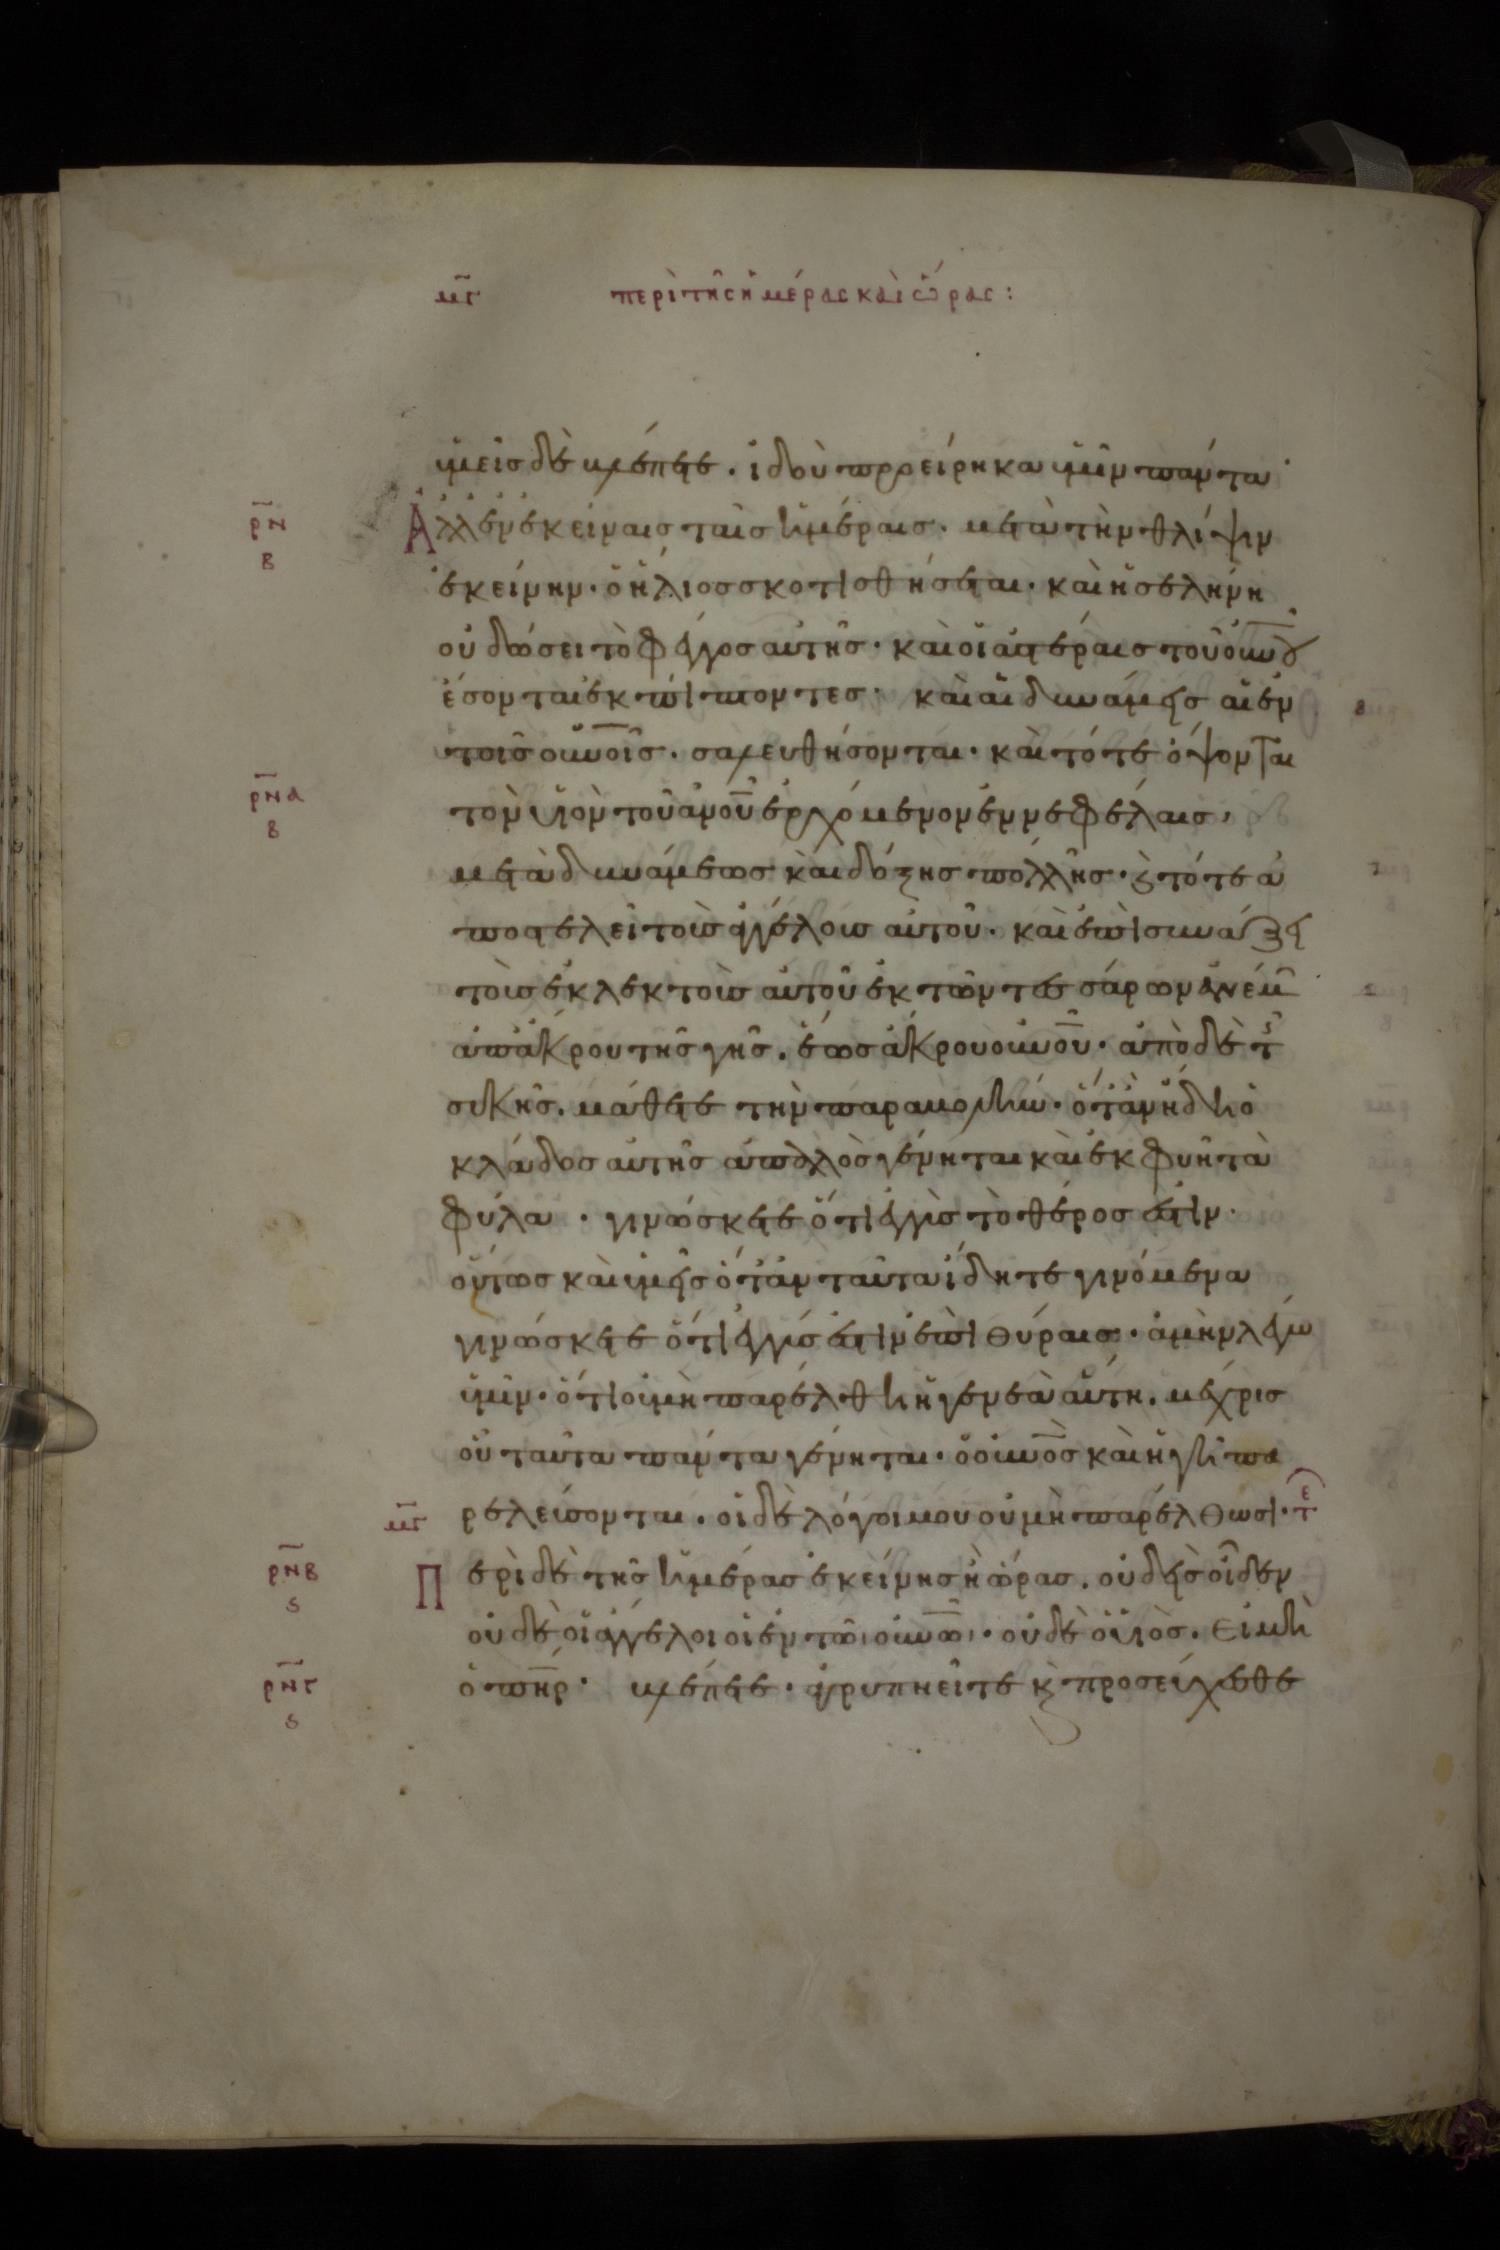 μγ περὶ τῆς ἡμέρας καὶ ὥρας :
ὑμεῖς δὲ βλέπετε . ἰδοὺ προείρηκα ὑμῖν πάντα
ρν Ἀλλ ἐν ἐκείναις ταῖς ἡμέραις . μετὰ τὴν θλίψιν
β
ἐκείνην . ὁ ἥλιος σκοτισθήσεται . καὶ ἡ σελήνη
οὐ δώσει τὸ φέγγος αὐτῆς . καὶ οἱ ἀστέραις τοῦ οὐνου
ἔσονται ἐκπίπτοντες . καὶ αἱ δυνάμεις αἱ ἐν
τοῖς οὐνοῖς . σαλευθήσονται . καὶ τότε ὄψονται
ρνα τὸν υἱὸν τοῦ ἀνοῦ ἐρχόμενον ἐν νεφέλαις ,
β
μετὰ δυνάμεως καὶ δόξης πολλῆς . ϗ τότε ἀ
ποστελεῖ τοὺς ἀγγέλους αὐτοῦ . καὶ ἐπισυνάξει
τοὺς ἐκλεκτοὺς αὐτοῦ ἐκ τῶν τεσσάρων ἀνέμ
ἀπ ἄκρου τῆς γῆς . ἕως ἄκρου οὐνοῦ . ἀπὸ δὲ τ
συκῆς . μάθετε τὴν παραβολήν . ὅταν ἤδη ὁ
κλάδος αὐτῆς ἁπαλὸς γένηται καὶ ἐκφυῆ τὰ
φύλλα . γινώσκετε ὅτι ἐγγὺς τὸ θέρος ἐστίν .
οὕτως καὶ ὑμεῖς ὅταν ταῦτα ἴδητε γινόμενα
γινώσκετε ὅτι ἐγγύς ἐστιν ἐπὶ θύραις . ἀμὴν λέγω
ὑμῖν . ὅτι οὐ μὴ παρέλθη ἡ γενεὰ αὕτη . μέχρις
οὗ ταῦτα πάντα γένηται . ὁ οὐνὸς καὶ ἡ γῆ πα
μγ ρελεύσονται . οἱ δὲ λόγοι μου οὐ μὴ παρέλθωσι . τε
ρνβ Περὶ δὲ τῆς ἡμέρας ἐκείνης ἢ ὥρας . οὐδεὶς οἶδεν
ς
οὐδὲ οἱ ἄγγελοι οἱ ἐν τῶ οὐνῶ . οὐδὲ ὁ υἱὸς . εἰ μὴ
ρνγ ὁ πηρ . βλέπετε . ἀγρυπνεῖτε ϗ προσεύχεσθε
ς